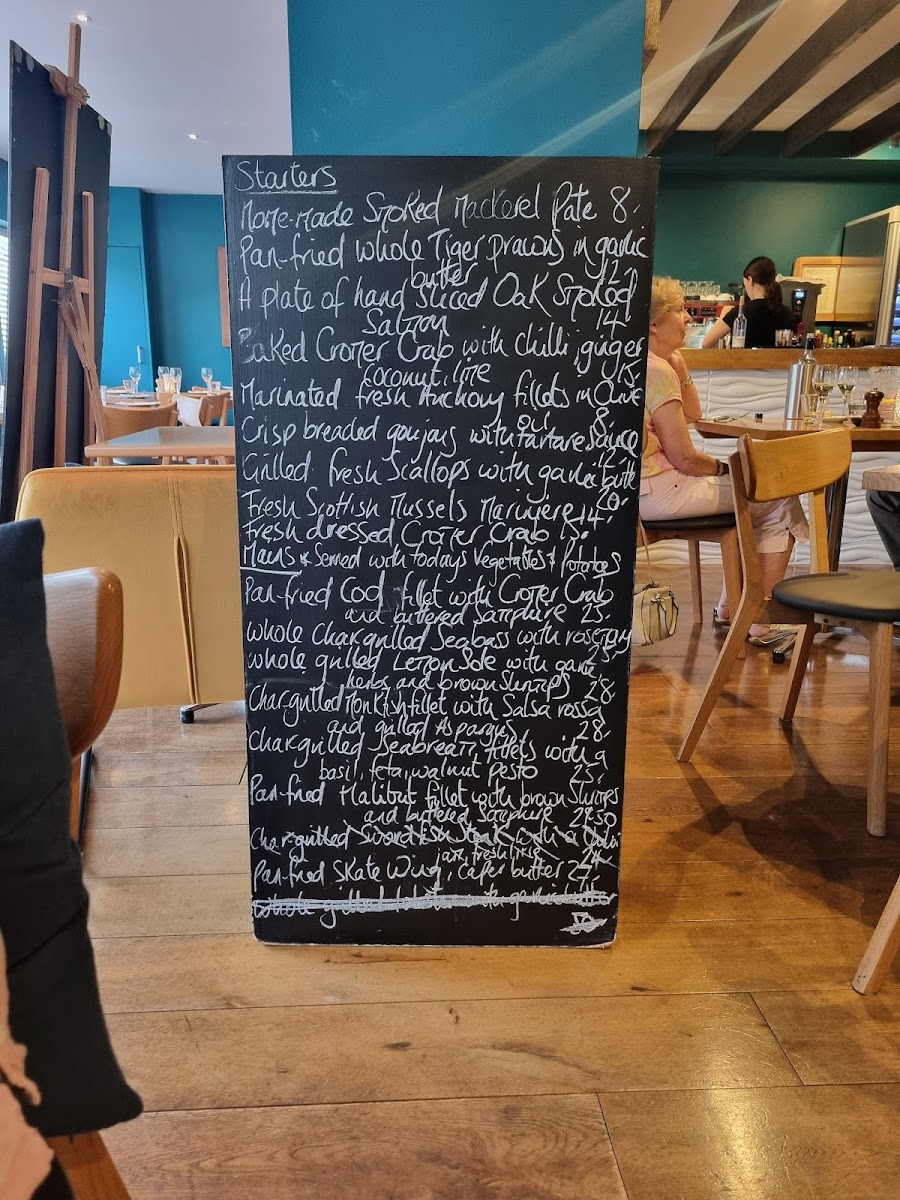 Starters
Home-made Smoked Mackerel Pate 8,
Pan-fried whole Tiger prawns in garlic
butter 12,
A plate of hand sliced Oak Smoked
Salmon 14
Baked Cromer Crab with chilli, ginger
coconut, lime 15,
Marinated fresh Anchovy fillets in Olive
oil 8,
Crisp breaded goujons with tartare sauce
12,
Grilled fresh Scallops with garlic butter
20,
Fresh Scottish Mussels Mariniere 14,
Fresh dressed Cromer Crab 15,
Mains * Served with todays Vegetables & Potatoes
Pan-fried Cod fillet with Cromer Crab
and buttered Samphire 25,
Whole Chargrilled Seabass with rosemary
25,
Whole grilled Lemon Sole with garlic
herbs and brown Shrimps 28,
Char-grilled Monkfish fillet with Salsa rossa
and grilled Aspargus, 28,
Chargrilled Seabream fillets with a
basil, feta, walnut pesto 25,
Pan-fried Halibut fillet with brown Shrimps
and buttered Samphire 29.50
Char-grilled Swordfish Steak with a
fresh lime
Pan-fried Skate Wing, Caper butter 27,
Whole grilled lobster with garlic butter